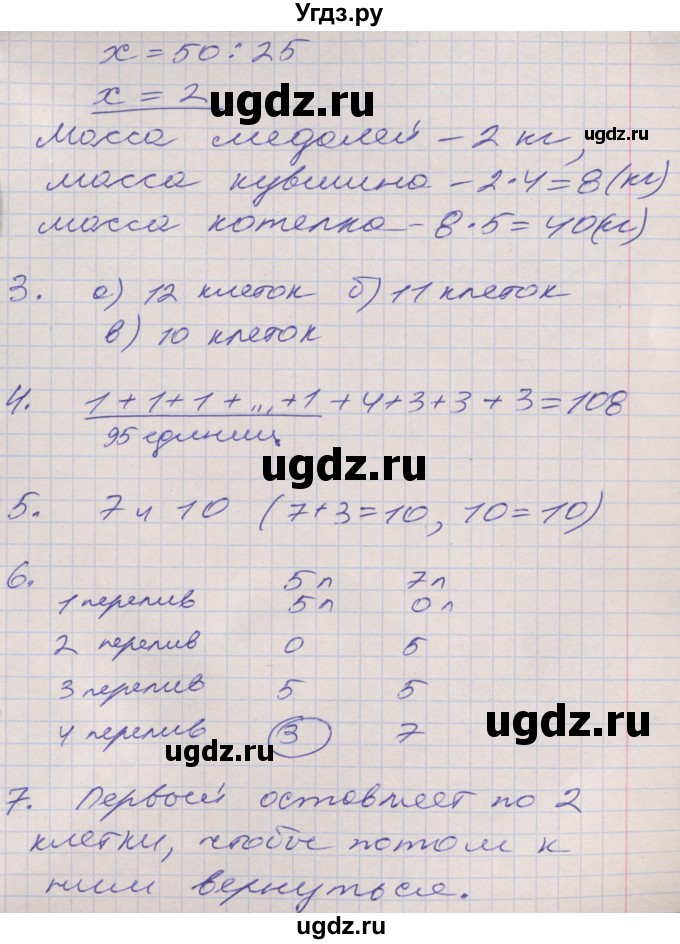 Угдз.ру
x = 50 : 25
x = 2
ugdz.ru
ugdz.ru
Масса медалей – 2 кг,
масса кувшина – 2·4=8(кг)
масса котелка – 8·5=40(кг)
3. а) 12 клеток б) 11 клеток
в) 10 клеток
4. 1+1+1+...+1+4+3+3+3=108
95 единиц
ugdz.ru
5. 7 и 10 (7+3=10, 10=10)
6. 5л 7л
1 перелив 5л 0л
2 перелив 0 5
3 перелив 5 5
4 перелив 3 7
ugdz.ru
ugdz.ru
7. Первый оставляет по 2
клетки, чтобы потом к
ним вернуться.
ugdz.ru